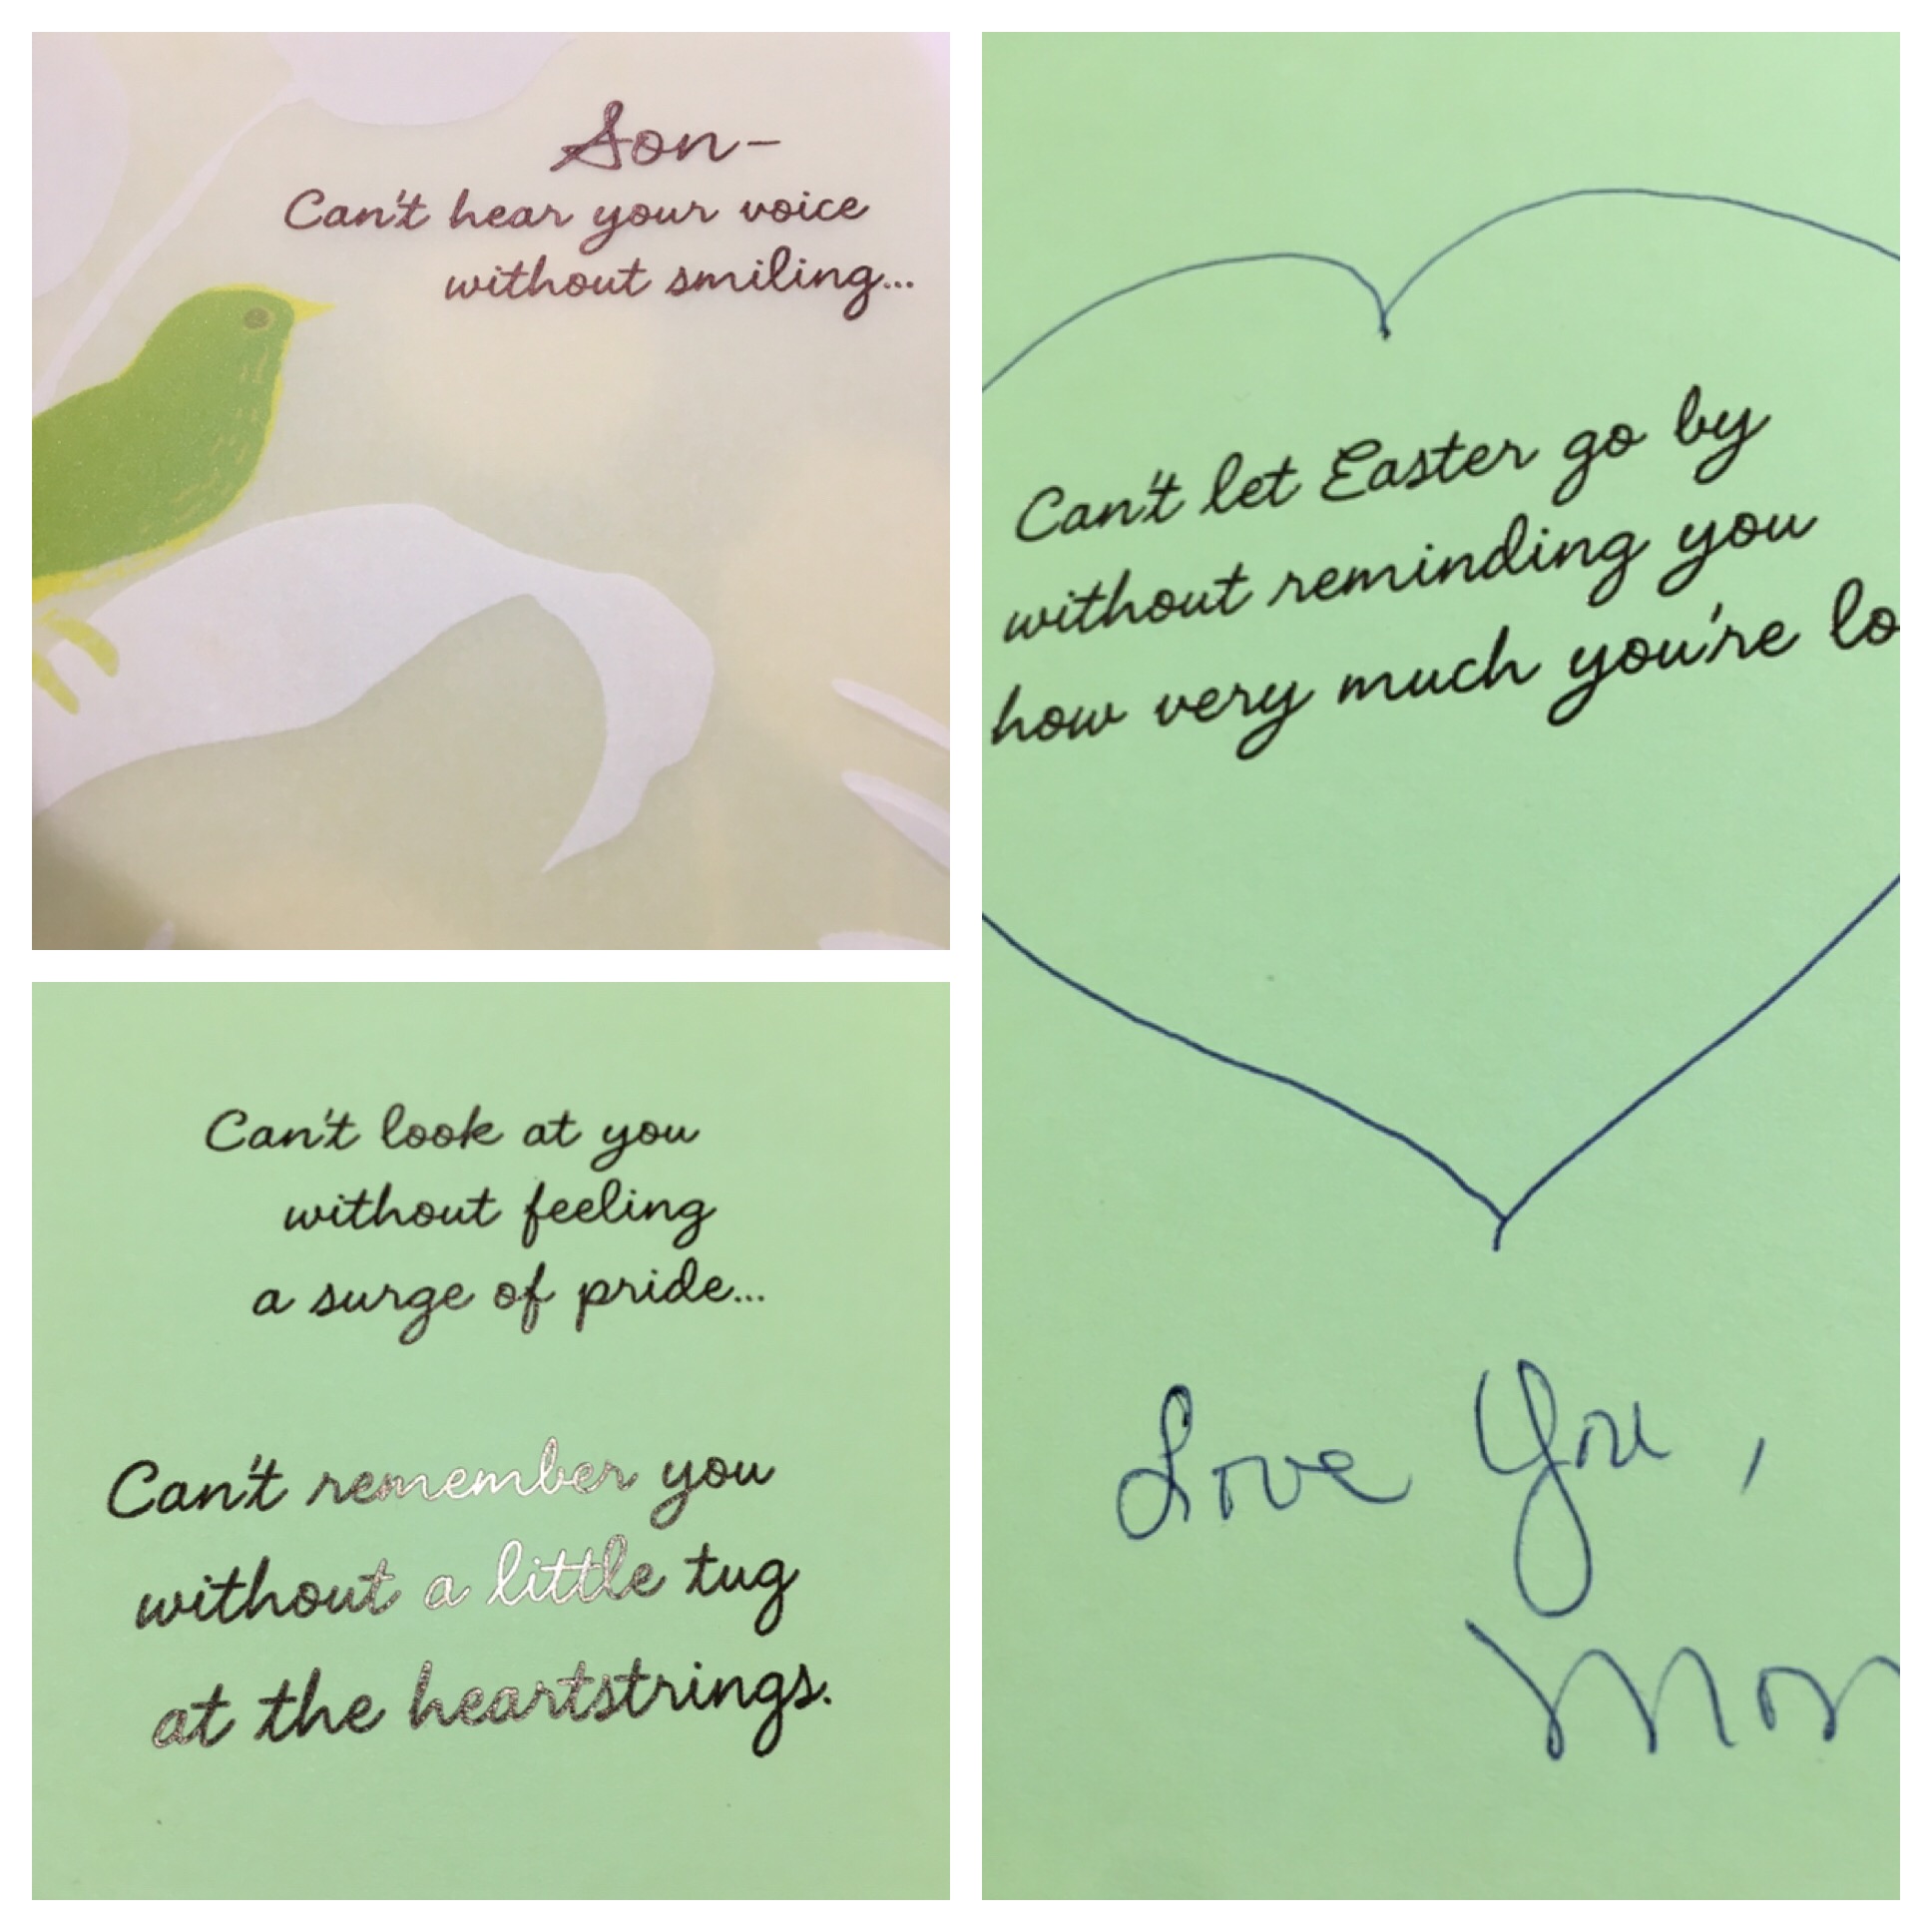 Son-
Can't hear your voice
without smiling...
Can't look at you
without feeling
a surge of pride...
Can't remember you
without a little tug
at the heartstrings.
Can't let Easter go by
without reminding you
how very much you're lo
Love You,
Mom